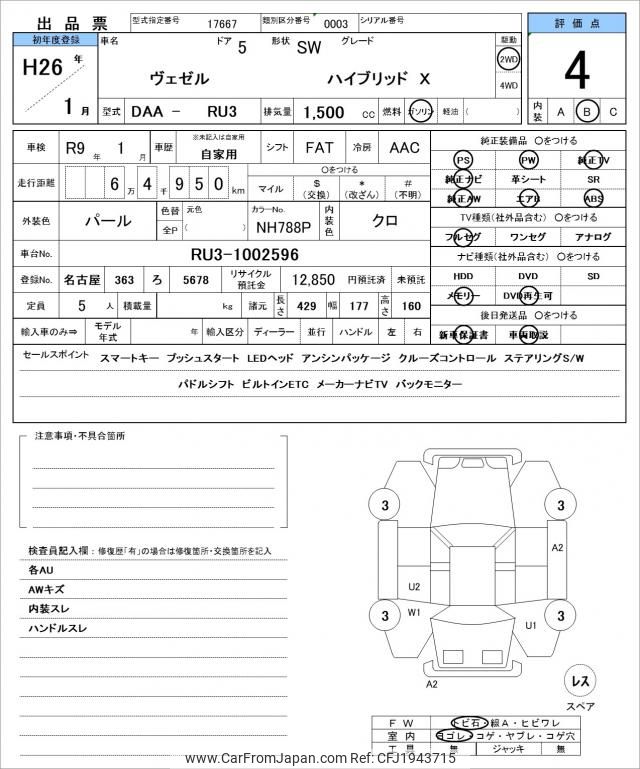 出品票 型式指定番号 17667 類別区分番号 0003 シリアル番号
初年度登録 車名 ドア 5 形状 SW グレード 駆動 評価点
H26 年 1 月
ヴェゼル ハイブリッド X 2WD 4WD
4
型式 DAA - RU3 排気量 1,500 cc 燃料 ガソリン 軽油 ( )
内装 A B C
車検 R9 年 1 月 車歴 ※未記入は自家用 自家用 シフト FAT 冷房 AAC
純正装備品 ○をつける
PS PW 純正TV
走行距離 6 万 4 千 9 5 0 km
○をつける
マイル $ (交換) * (改ざん) # (不明)
純正ナビ 革シート SR
純正AW エアB ABS
外装色 パール 色替 元色 全P ( ) カラーNo. NH788P 内装色 クロ
TV種類(社外品含む) ○をつける
フルセグ ワンセグ アナログ
車台No. RU3-1002596
ナビ種類(社外品含む) ○をつける
登録No. 名古屋 363 ろ 5678 リサイクル預託金 12,850 円預託済 未預託
HDD DVD SD
定員 5 人 積載量 kg 諸元 長さ 429 幅 177 高さ 160
メモリー DVD再生可
後日発送品 ○をつける
輸入車のみ⇒ モデル年式 年 輸入区分 ディーラー 並行 ハンドル 左 右
新車保証書 車両取説
セールスポイント スマートキー プッシュスタート LEDヘッド アンシンパッケージ クルーズコントロール ステアリングS/W
パドルシフト ビルトインETC メーカーナビTV バックモニター
注意事項・不具合箇所
検査員記入欄 : 修復歴「有」の場合は修復箇所・交換箇所を記入
各AU
AWキズ
内装スレ
ハンドルスレ
3 3
A2
U2
3 W1 U1 3
A2
レス
スペア
FW トビ石・線A・ヒビワレ
室内 ヨゴレ・コゲ・ヤブレ・コゲ穴
工具 無 ジャッキ 無
www.CarFromJapan.com Ref: CFJ1943715